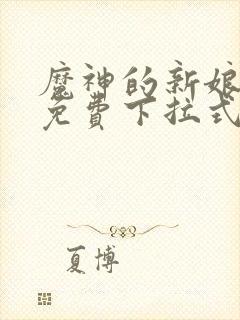 魔神的新娘
免費下拉式
夏博